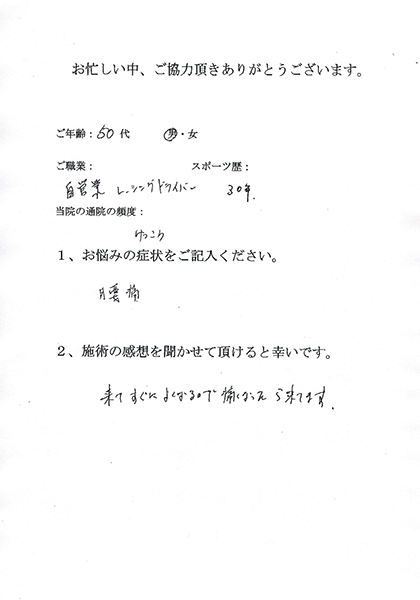 お忙しい中、ご協力頂きありがとうございます。
ご年齢：50代　男・女
ご職業：　スポーツ歴：
自営業 レーシングドライバー　30年.
当院の通院の頻度：
けっこう
１、お悩みの症状をご記入ください。
腰痛
２、施術の感想を聞かせて頂けると幸いです。
来てすぐによくなるので痛くなったら来てます.